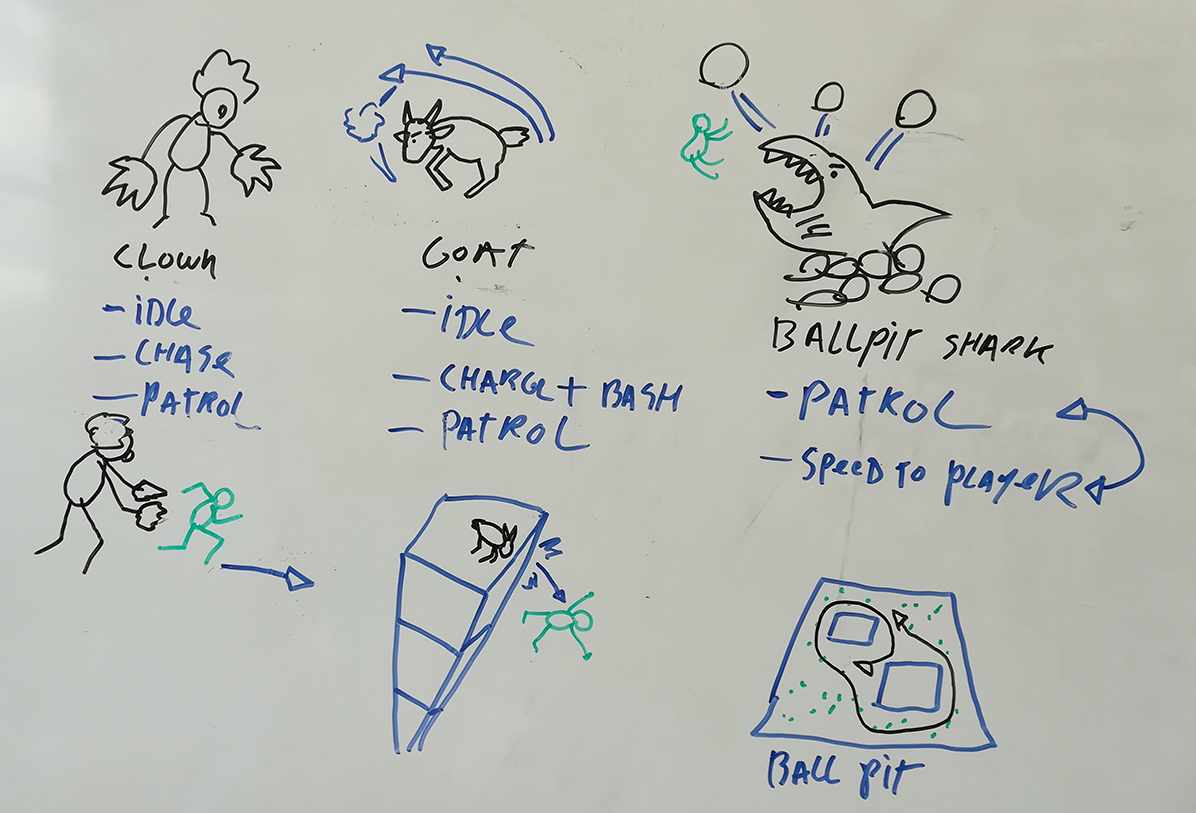 CLOWN
- IDLE
- CHASE
- PATROL
GOAT
- IDLE
- CHARGE + BASH
- PATROL
BALLPIT SHARK
- PATROL
- SPEED TO PLAYER
BALL PIT